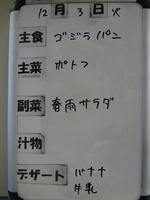 12月3日火
主食 ゴジラパン
主菜 ポトフ
副菜 春雨サラダ
汁物
デザート バナナ
牛乳